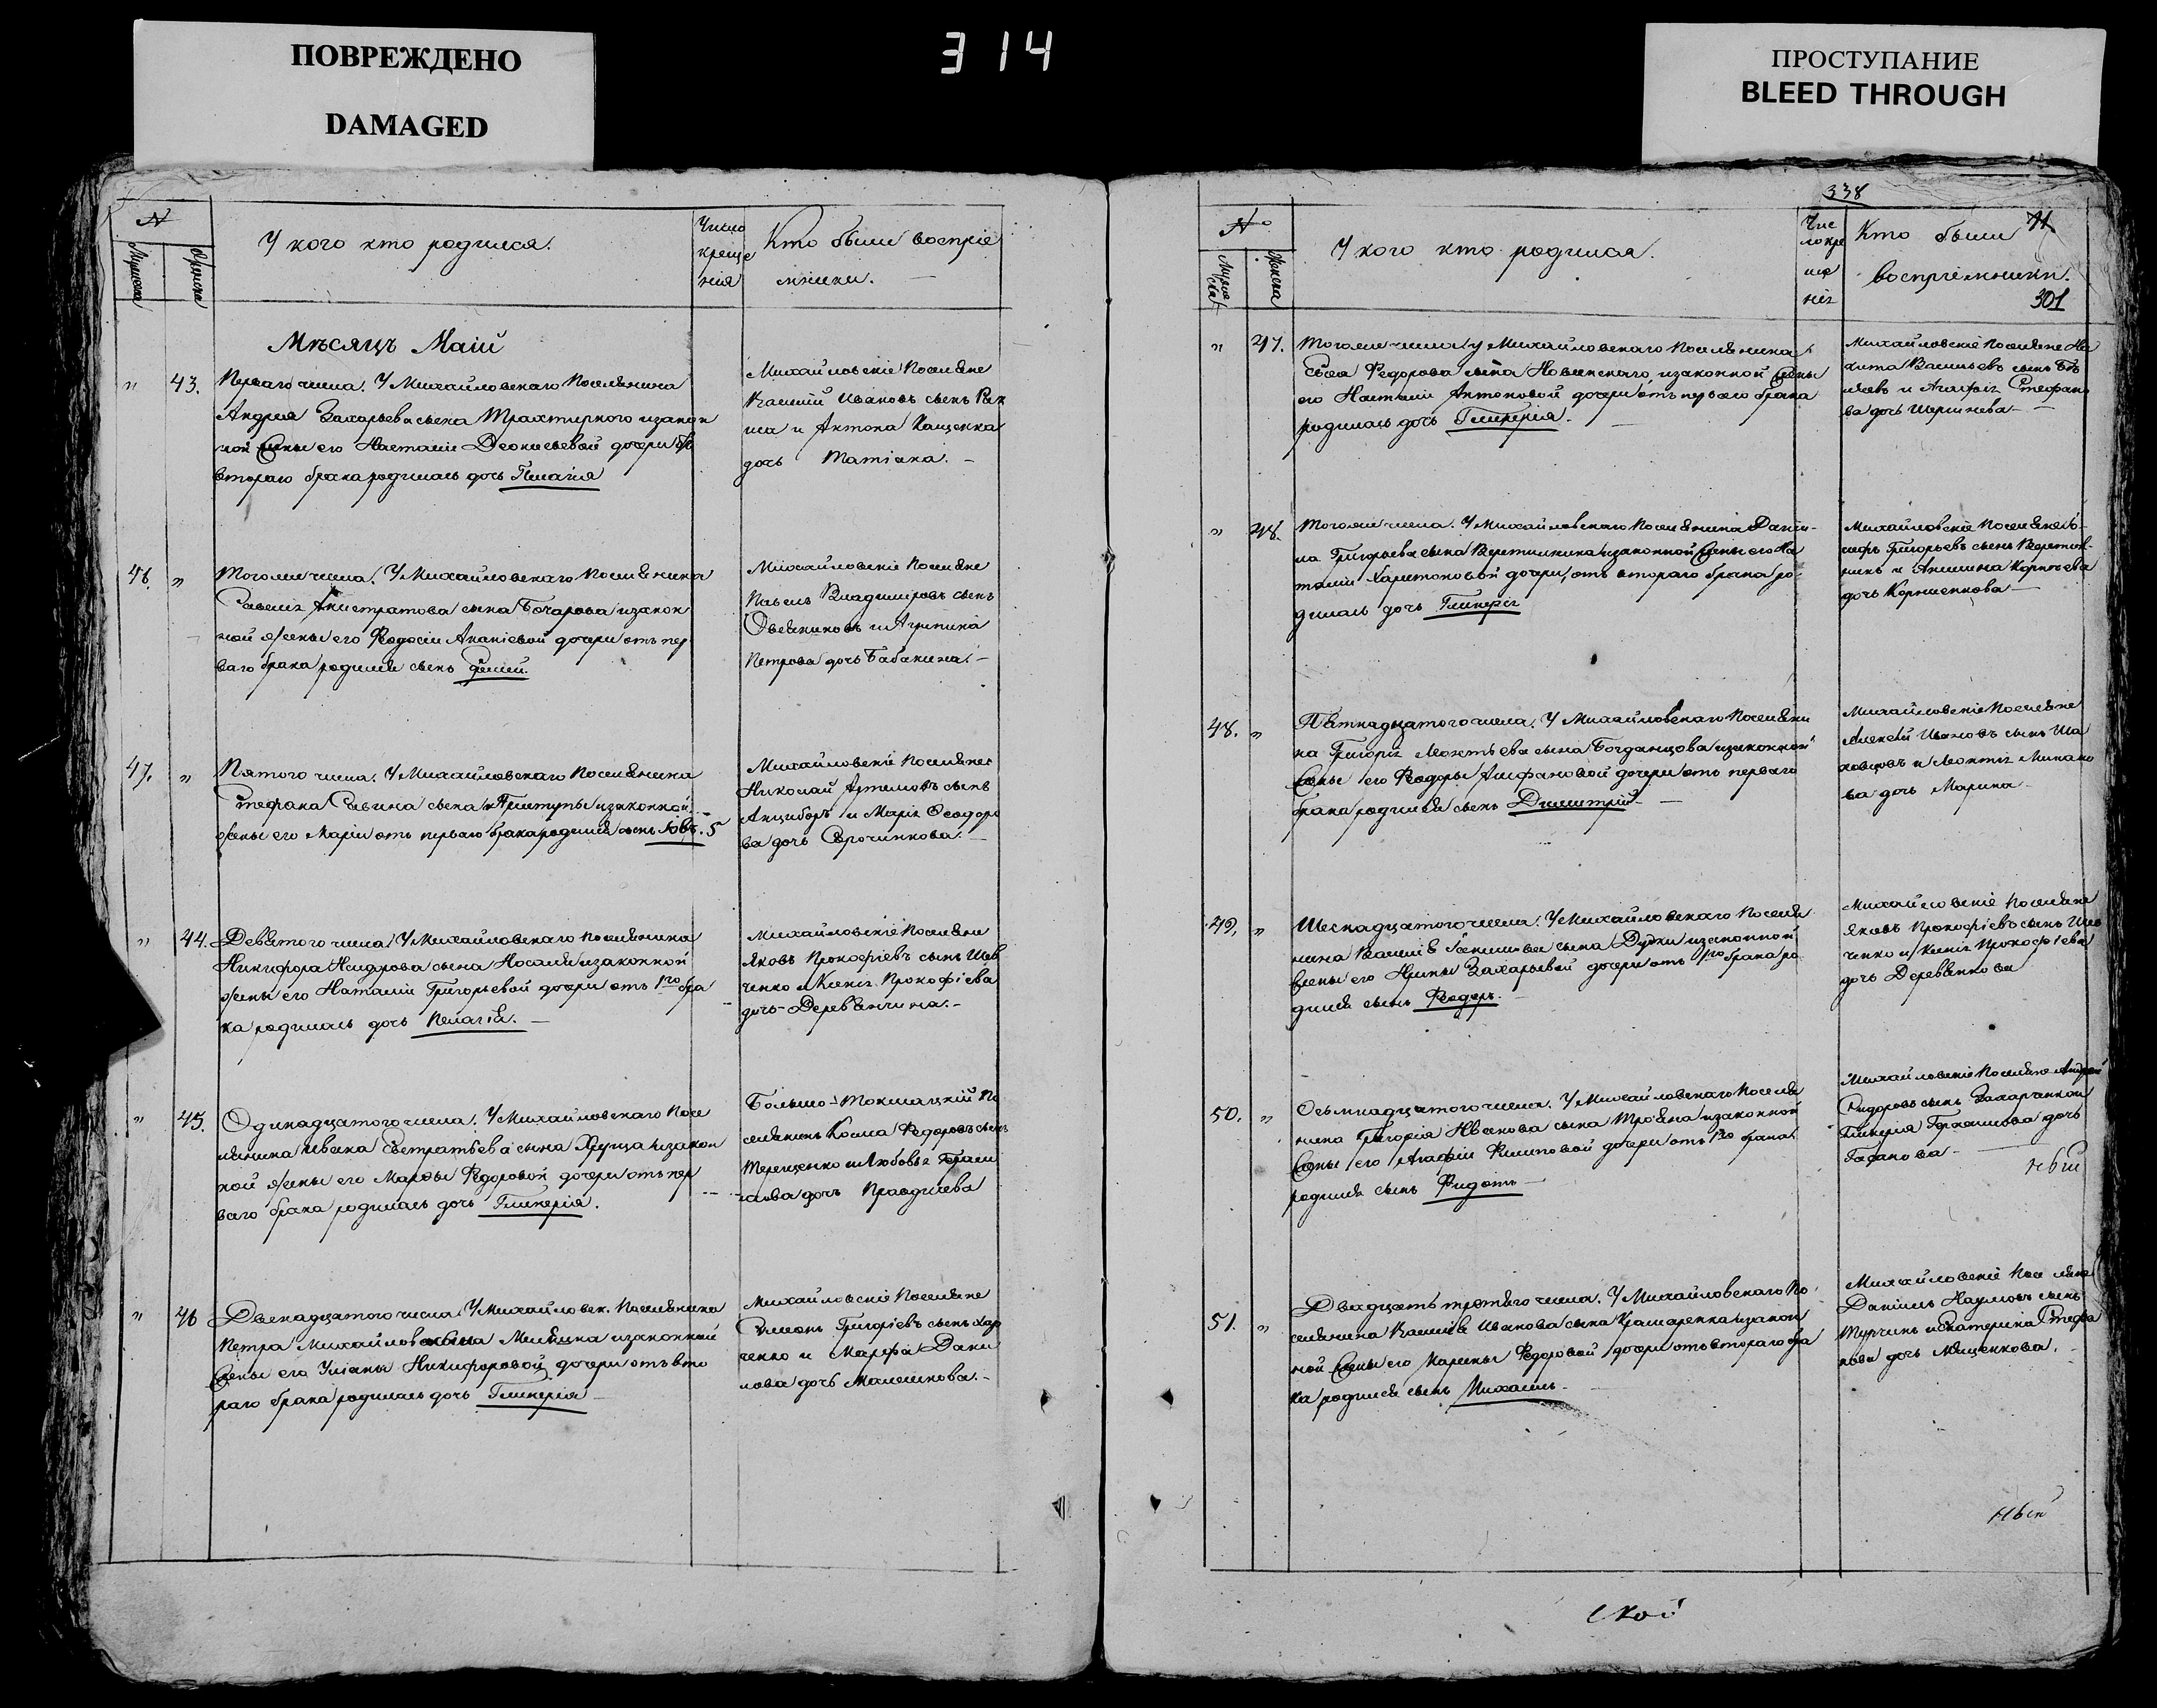 ПОВРЕЖДЕНО
DAMAGED
314
ПРОСТУПАНИЕ
BLEED THROUGH
№
Мужеска
Женска
У кого кто родился.
Число
креще
нія
Кто были воспріе
мники.
Мѣсяцъ Маій
„ 43.
Перваго числа. У Михайловскаго поселянина
Андрея Захарьева сына Трахтирного изакон
ной жены его Наталіи Деонисьевой дочери отъ
втораго брака родилась дочь Пелагія
Михайловскіе поселяне
Василій Ивановъ сынъ
и Антона Кащенка
дочь Татіана.
46. „
Тогоже числа. У Михайловскаго поселянина
Савелія Акистратова сына Бочарова изакон
ной жены его Феодосіи Ананіевой дочери отъ пер
ваго брака родился сынъ
Михайловскіе поселяне
Павелъ Владиміровъ сынъ
Овсяниковъ и Агрипина
Петрова дочь Бабакина.
47. „
Пятого числа. У Михайловскаго поселянина
Стефана Савина сына Приступы изаконной
жены его Маріи отъ перваго брака родился сынъ Іовъ. 5
Михайловскіе поселяне
Николай Артемовъ сынъ
Анциборъ и Марія Феодоро
ва дочь Сорочинкова.
„ 44.
Девятого числа. У Михайловскаго поселянина
Никифора Исидорова сына Носаля изаконной
жены его Наталіи Григорьевой дочери отъ 1го бра
ка родилась дочь Пелагія.
Михайловскіе поселяне
Яковъ Прокофіевъ сынъ Шев
ченко и Ксенія Прокофіева
дочь Деревянчина.
„ 45.
Одинадцатого числа. У Михайловскаго посе
лянина Ивана Евстратьева сына Хруща изакон
ной жены его Марфы Федоровой дочери отъ пер
ваго брака родилась дочь Гликерія.
Большо-Токмацкій по
селянинъ Косма Федоровъ сынъ
Терещенко и Любовья Гераси
мова дочь Праодиева
„ 46
Двенадцатого числа. У Михайловск. поселянина
Петра Михайлова сына Миляцка изаконной
жены его Уліаны Никифоровой дочери отъ вто
раго брака родилась дочь Гликерія
Михайловскіе поселяне
Симонъ Григоріевъ сынъ Хар
ченко и Марфа Дани
лова дочь Малышкова.
338
№
Мужеска
Женска
У кого кто родился.
Чис
ло кре
ще
нія
Кто были
воспріемники.
301
„ 47.
Тогоже числа у Михайловскаго поселянина
Евсея Федорова сына Новинскаго изаконной жены
его Наталіи Антоновой дочери отъ перваго брака
родилась дочь Гликерія.
Михайловскіе поселяне Ни
кита Васильевъ сынъ Бѣ
ляевъ и Агафія Стефано
ва дочь Шершнева
„ 48.
Тогоже числа. У Михайловскаго поселянина Дани
ла Григорьева сына Веретилника изаконной жены его На
таліи Харитоновой дочери отъ втораго брака ро
дилась дочь Гликерія
Михайловскіе поселяне
Григорьевъ сынъ
и Корнѣева
дочь
48. „
Пятнадцатого числа. У Михайловскаго поселяни
на Григорія Леонтьева сына Богданцова изаконной
жены его Федоры Агафановой дочери отъ перваго
брака родился сынъ Димитрій
Михайловскіе поселяне
Алексѣй Ивановъ сынъ Ша
ховцовъ и Леонтія Минако
ва дочь Марина
49. „
Шеснадцатого числа. У Михайловскаго поселя
нина Василія Іакимова сына Дудки изаконной
жены его Ирины Захарьевой дочери отъ 1го брака ро
дился сынъ Феодоръ.
Михайловскіе поселяне
Яковъ Прокофіевъ сынъ Шев
ченко и Ксенія Прокофіева
дочь Деревянкова
50. „
Осьмнадцатого числа. У Михайловскаго поселя
нина Григорія Иванова сына Трояна изаконной
жены его Агафіи Филиповой дочери отъ 1го брака
родился сынъ Фидотъ
Михайловскіе поселяне Андрей
Сидоровъ сынъ Захарченко и
Гликерія Герасимова дочь
Гаранова
51. „
Двадцать третяго числа. У Михайловскаго по
селянина Василія Иванова сына Крамаренка изакон
ной жены его Марины Федоровой дочери отъ втораго бра
ка родился сынъ Михаилъ
Михайловскіе поселяне
Даніилъ Наумовъ сынъ
Турчинъ и Екатерина Стефа
нова дочь Мищенкова.
ской